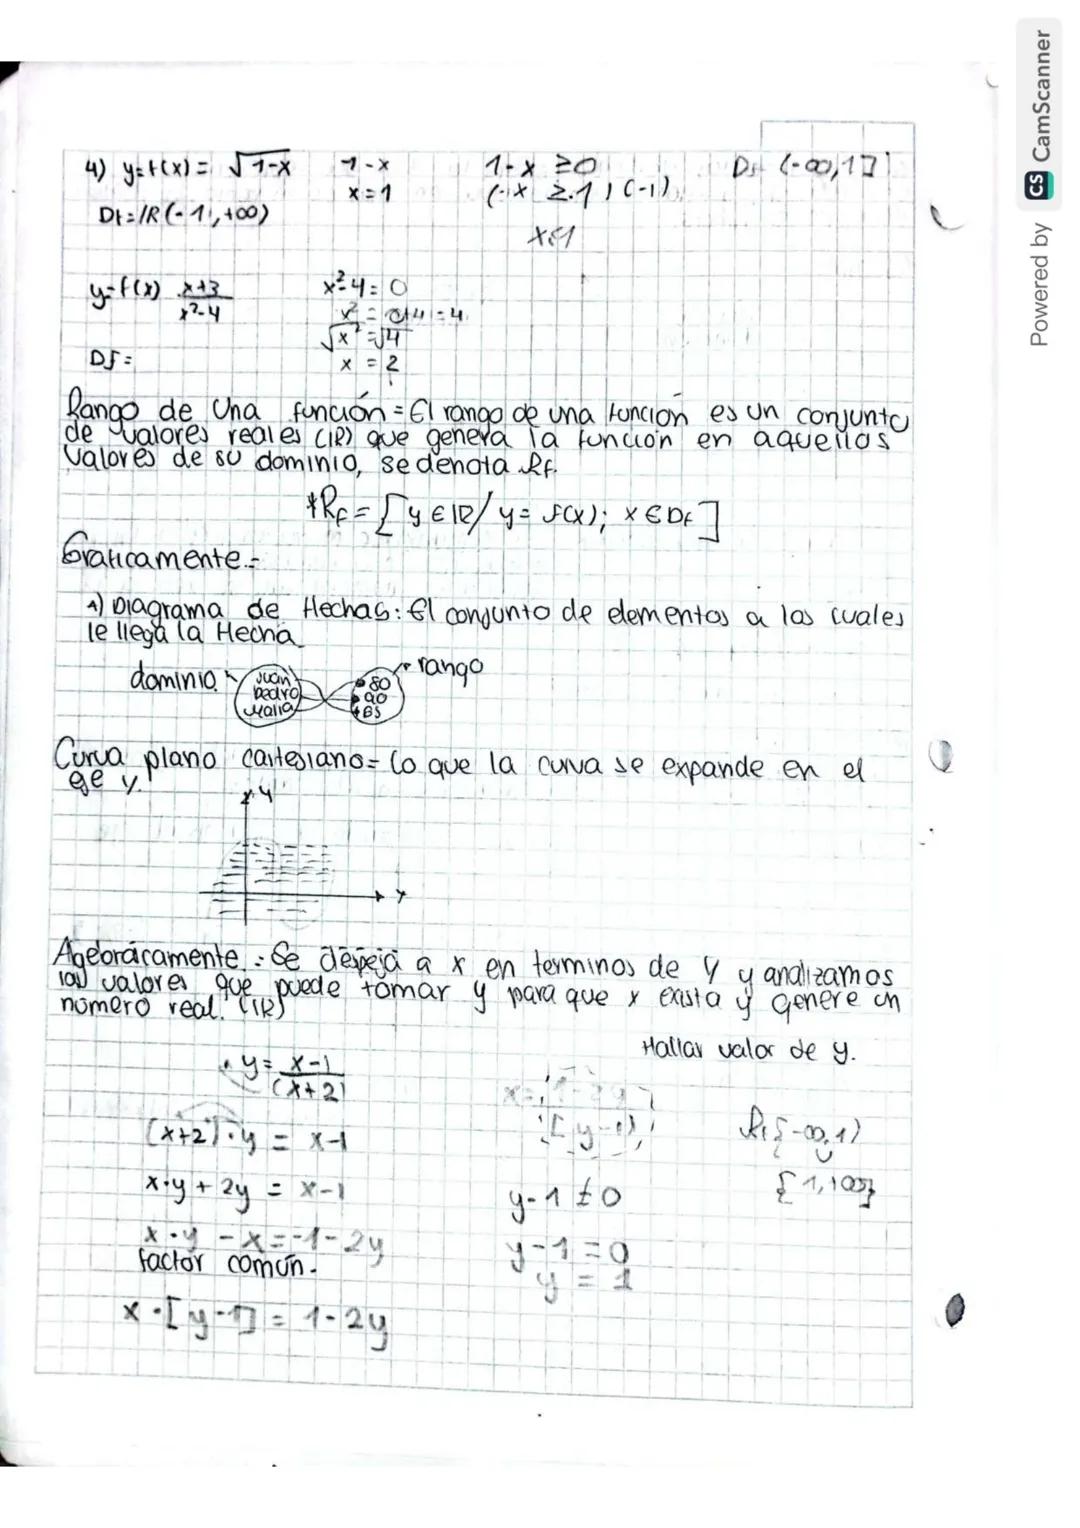 4) y=f(x) = √1-x    1-x    1-x ≥0    Df (-∞,1]
x=1    (-x ≥-1) (-1)
Df=IR(-1,+∞)
x≤1
y=f(x) x+3/x²-4    x²-4=0
x² = 0+4=4
√x² =√4
Df=    x = 2
Rango de Una función = El rango de una función es un conjunto
de valores reales (IR) que genera la función en aquellos
valores de su dominio, se denota Rf.
*Rf = [y ∈ IR/ y= f(x); x ∈ Df]
Graficamente.-
1) Diagrama de flechas: El conjunto de elementos a los cuales
le llega la flecha
dominio    Juan    80    rango
pedro    90
Maria    85
Curva plano cartesiano= lo que la curva se expande en el
eje y.
y
x
Agebraicamente.: Se despeja a x en terminos de y y analizamos
los valores que puede tomar y para que x exista y genere un
número real. (IR)
Hallar valor de y.
• y= x-1/(x+2)    x= 1-2y/[y-1)
(x+2)•y = x-1    Rf{-∞,1)
∪
x•y + 2y = x-1    y-1≠0    {1,+∞}
x•y -x=-1-2y    y-1=0
factor común.    y = 1
x •[y-1] = 1-2y
Powered by CS CamScanner